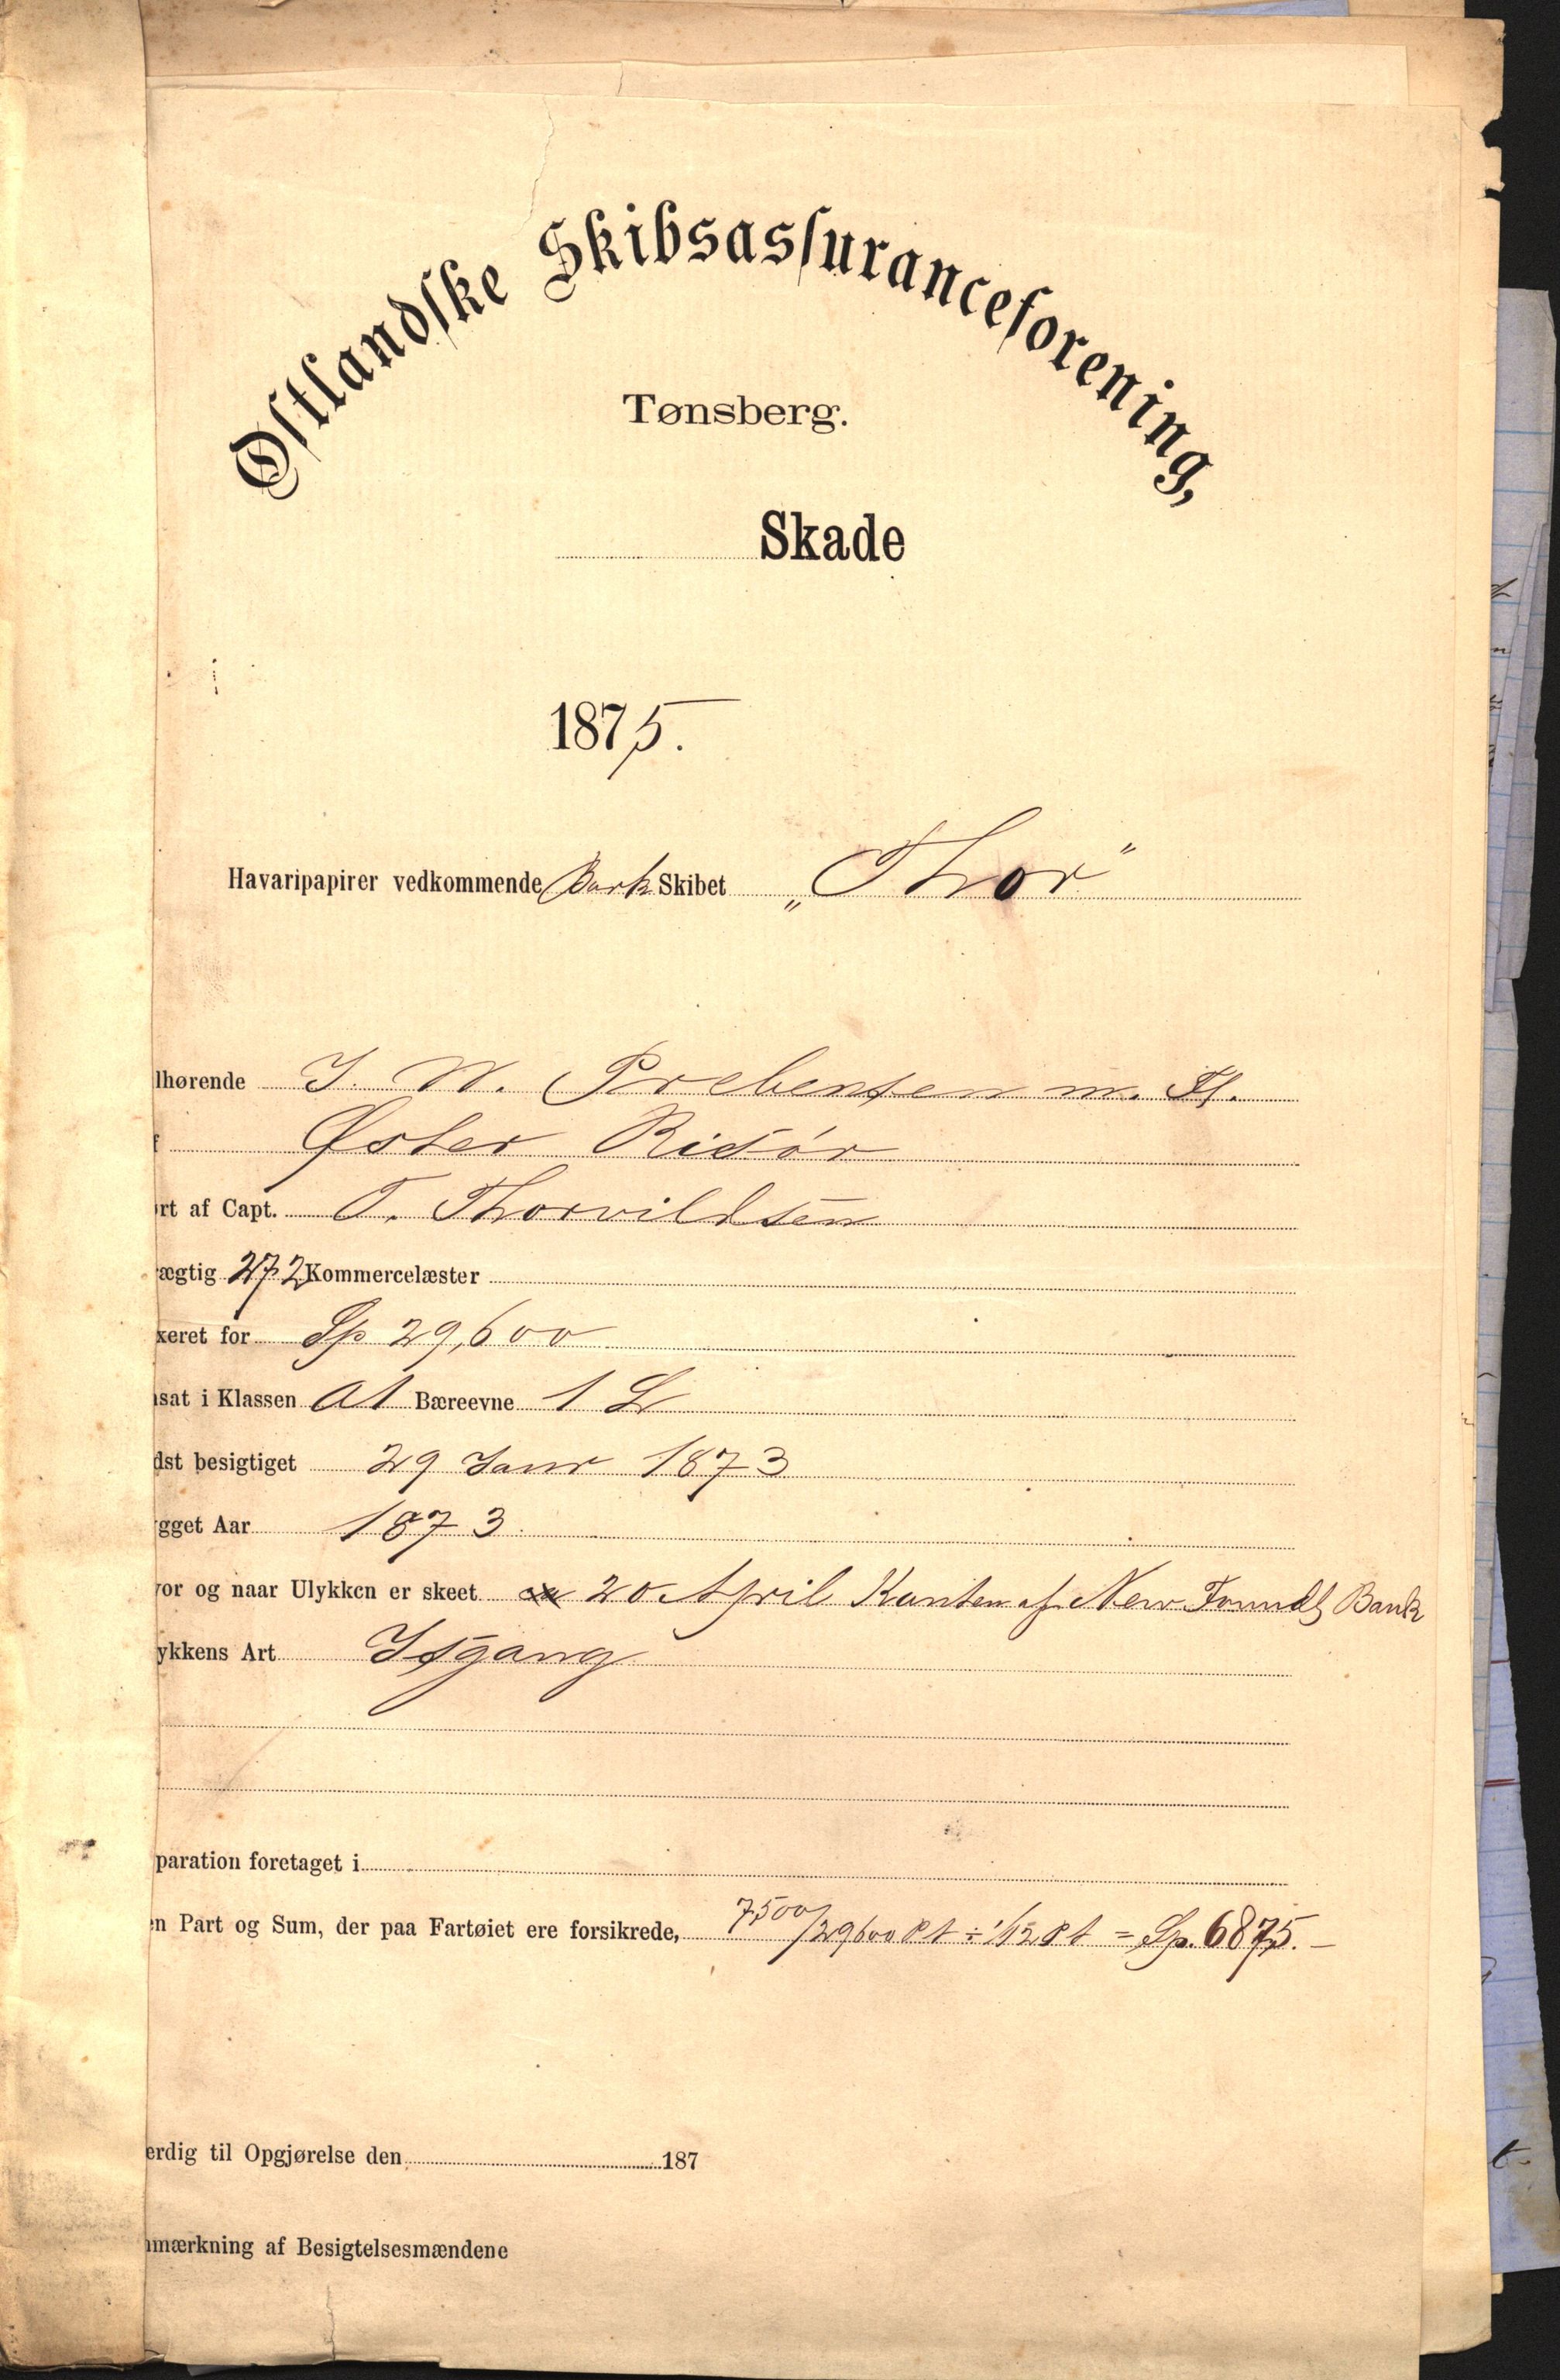 Østlandske Skibsassuranceforening,
Tønsberg.
Skade
1875.
Havaripapirer vedkommende Bark Skibet „Thor”
lhørende J. W. Prebensen m. Fl.
Øster Risør
rt af Capt. T. Thorvildsen
ægtig 272 Kommercelæster
xeret for Sp 29,600
sat i Klassen A1 Bæreevne 1 L
dst besigtiget 29 Janr 1873
gget Aar 1873.
vor og naar Ulykken er skeet 20 April Kanten af New Foundl Bank
ykkens Art Isgang
paration foretaget i
n Part og Sum, der paa Fartøiet ere forsikrede, 7500/29600 Pt ÷ 1/12 Pt = Sp. 6875.–
erdig til Opgjørelse den 187
mærkning af Besigtelsesmændene